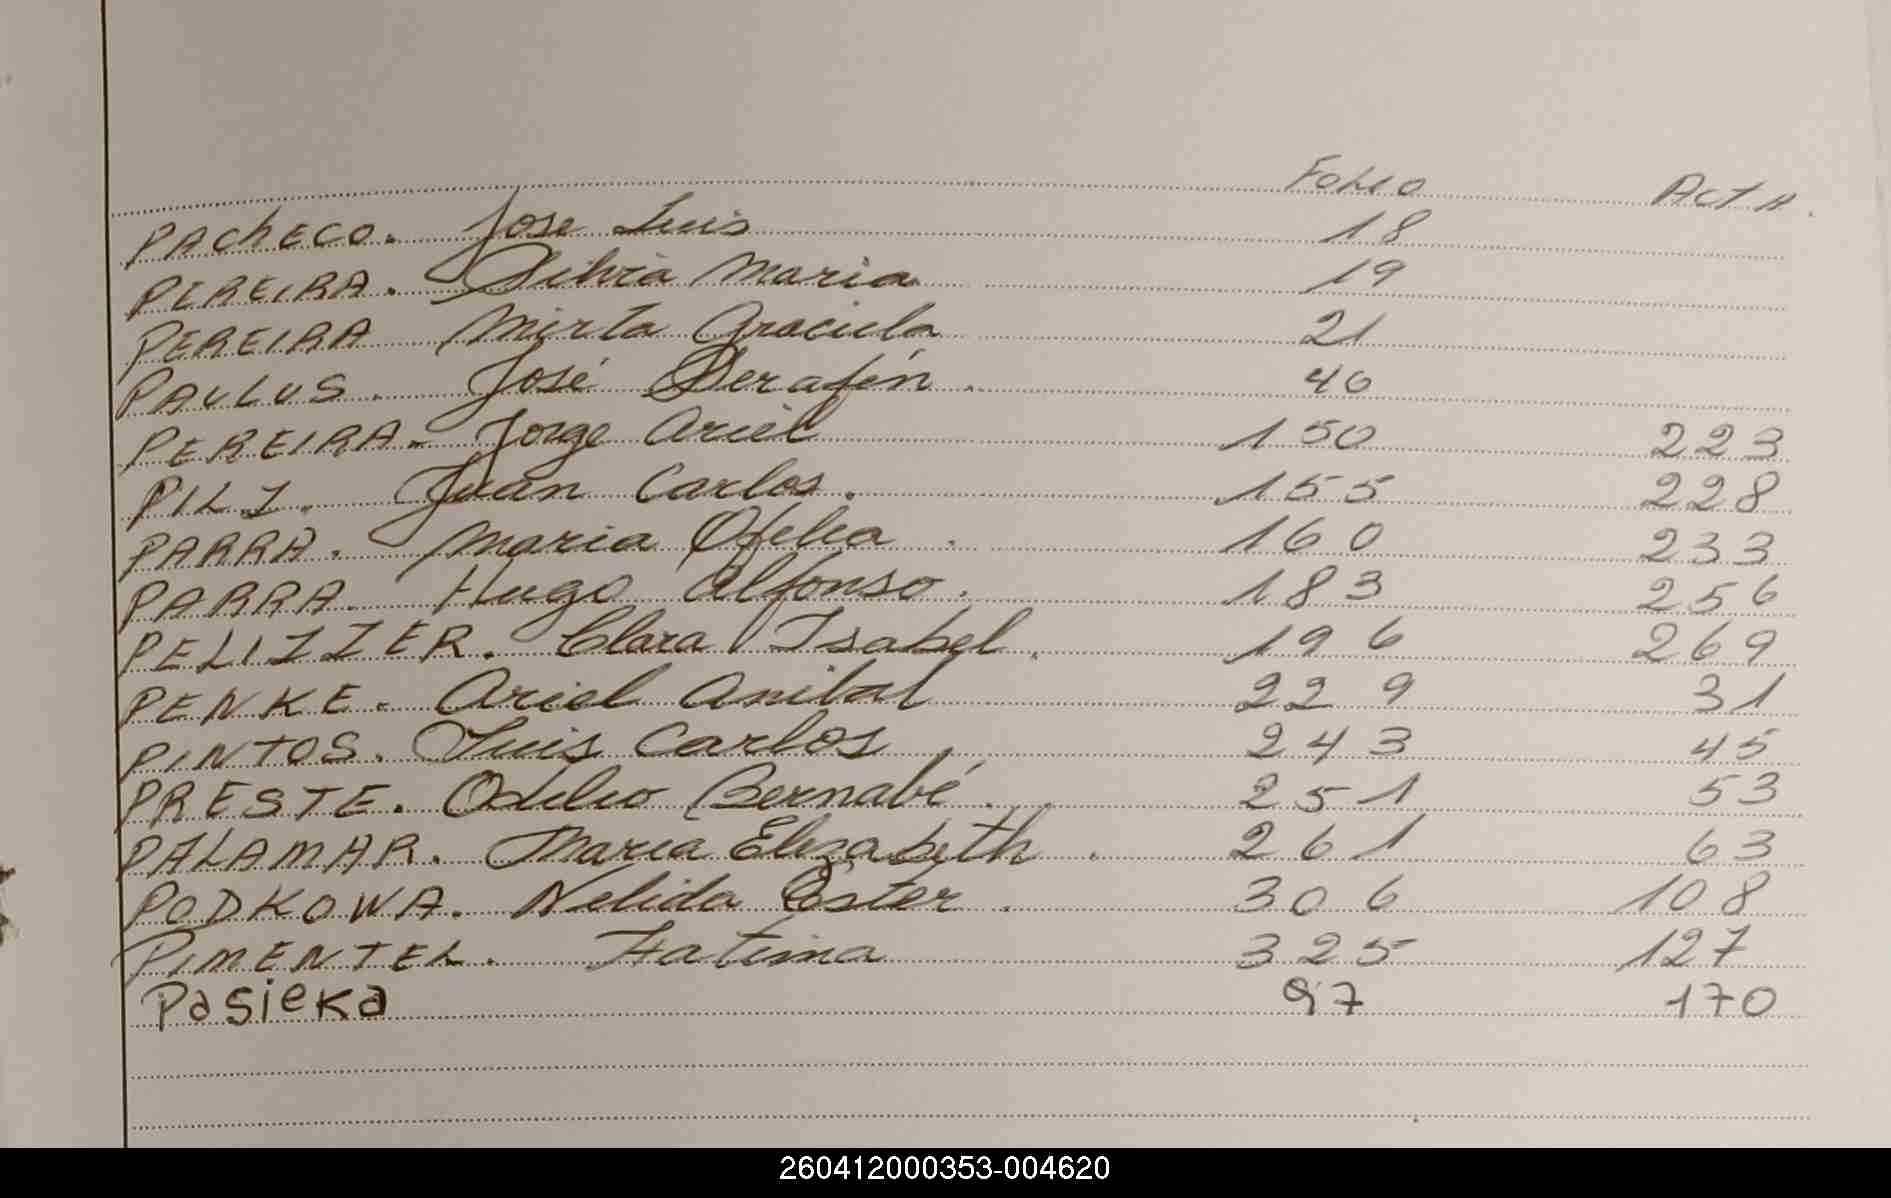 Folio Acta.
PACHECO. Jose Luis 18
PEREIRA. Silvia Maria 19
PEREIRA Mirta Graciela 21
PAULUS. José Serafín. 40
PEREIRA. Jorge Ariel 150 223
PILZ. Juan Carlos. 155 228
PARRA. Maria Ofelia. 160 233
PARRA. Hugo Alfonso. 183 256
PELIZZER. Clara Isabel. 196 269
PENKE. Ariel Anibal 229 31
PINTOS. Luis Carlos. 243 45
PRESTE. Odilio Bernabé. 251 53
PALAMAR. Maria Elizabeth. 261 63
PODKOWA. Nelida Ester. 306 108
PIMENTEL. Fatima 325 127
Pasieka 97 170
260412000353-004620